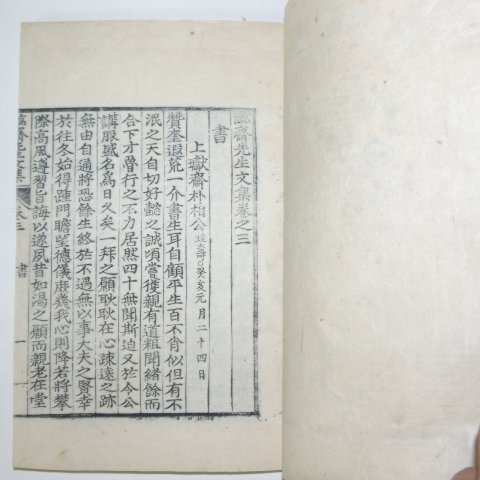 臨齋先生文集卷之三
書
上嶽齋朴相公珪壽○癸亥元月二十四日
贊奎遐荒一介書生耳自顧平生百不肖似但有不
泯之天自切好懿之誠頃嘗獲親有道粗聞緖餘而
合下才魯行之不力居然四十無聞斯迫又於令公
講服盛名爲日久矣一拜之願耿耿在心疎遠之跡
無由自通將恐餘生終於不遇無以事大夫之賢幸
於往冬始得踵門瞻望德儀庶幾我心則降若將攀
際高風遵習旨誨以遂夙昔如渴之願而親老在堂
臨齋先生文集 卷三 書 一